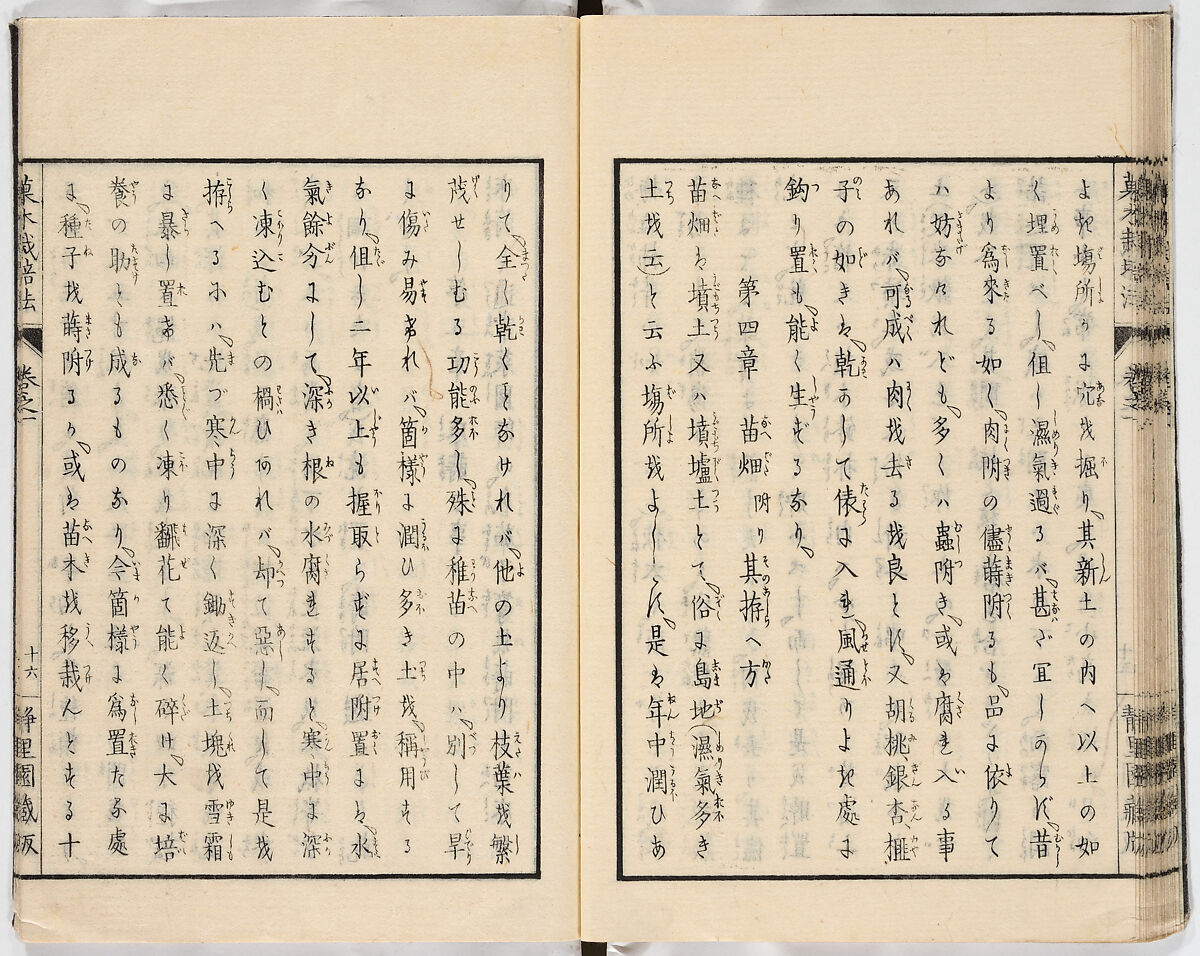 よき塲所りに穴を掘り、其新土の内へ以上の如
く埋置べし、但し濕氣過るバ、甚ざ冝しからず、昔
より爲來る如く、肉附の儘蒔附るも、品に依りて
ハ妨なけれども、多くハ蟲附き、或は腐れ入る事
あれバ、可成ハ肉を去るを良とす、又胡桃、銀杏、榧
子の如きは、乾かして俵に入れ、風通りよき處に
鈎り置も、能く生ずるなり、
第四章　苗畑附り其拵へ方
苗畑は墳土又ハ墳壚土とて、俗に島地(濕氣多き
土を云)と云ふ塲所をよしとす、是は年中潤ひあ
りて、全し乾くとなけれバ、他の土より枝葉を繁
茂せしむる功能多し、殊に稚苗の中ハ、別して旱
に傷み易けれバ、箇様に潤ひ多き土を、稱用する
なり、但し二年以上も握取らずに居附置には、水
氣餘分にして、深き根の水腐れすると、寒中に深
く凍込むとの禍ひあれバ、却て惡し、而して是を
拵へるにハ、先づ寒中に深く鋤返し、土塊を雪霜
に暴し置けバ、悉く凍り飜花て能く碎け、大に培
養の助とも成るものなり、今箇様に爲置たる處
に、種子を蒔附るか、或は苗木を移栽んとする十
菓木栽培法　卷之一　十六　静里園藏版